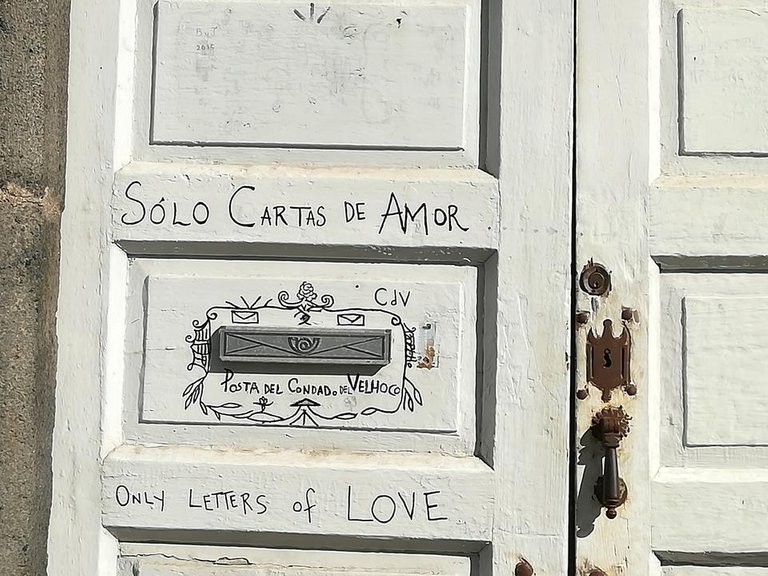 B y J
2015
SÓLO CARTAS DE AMOR
CdV
POSTA DEL CONDADO DEL VELHOCO
ONLY LETTERS of LOVE